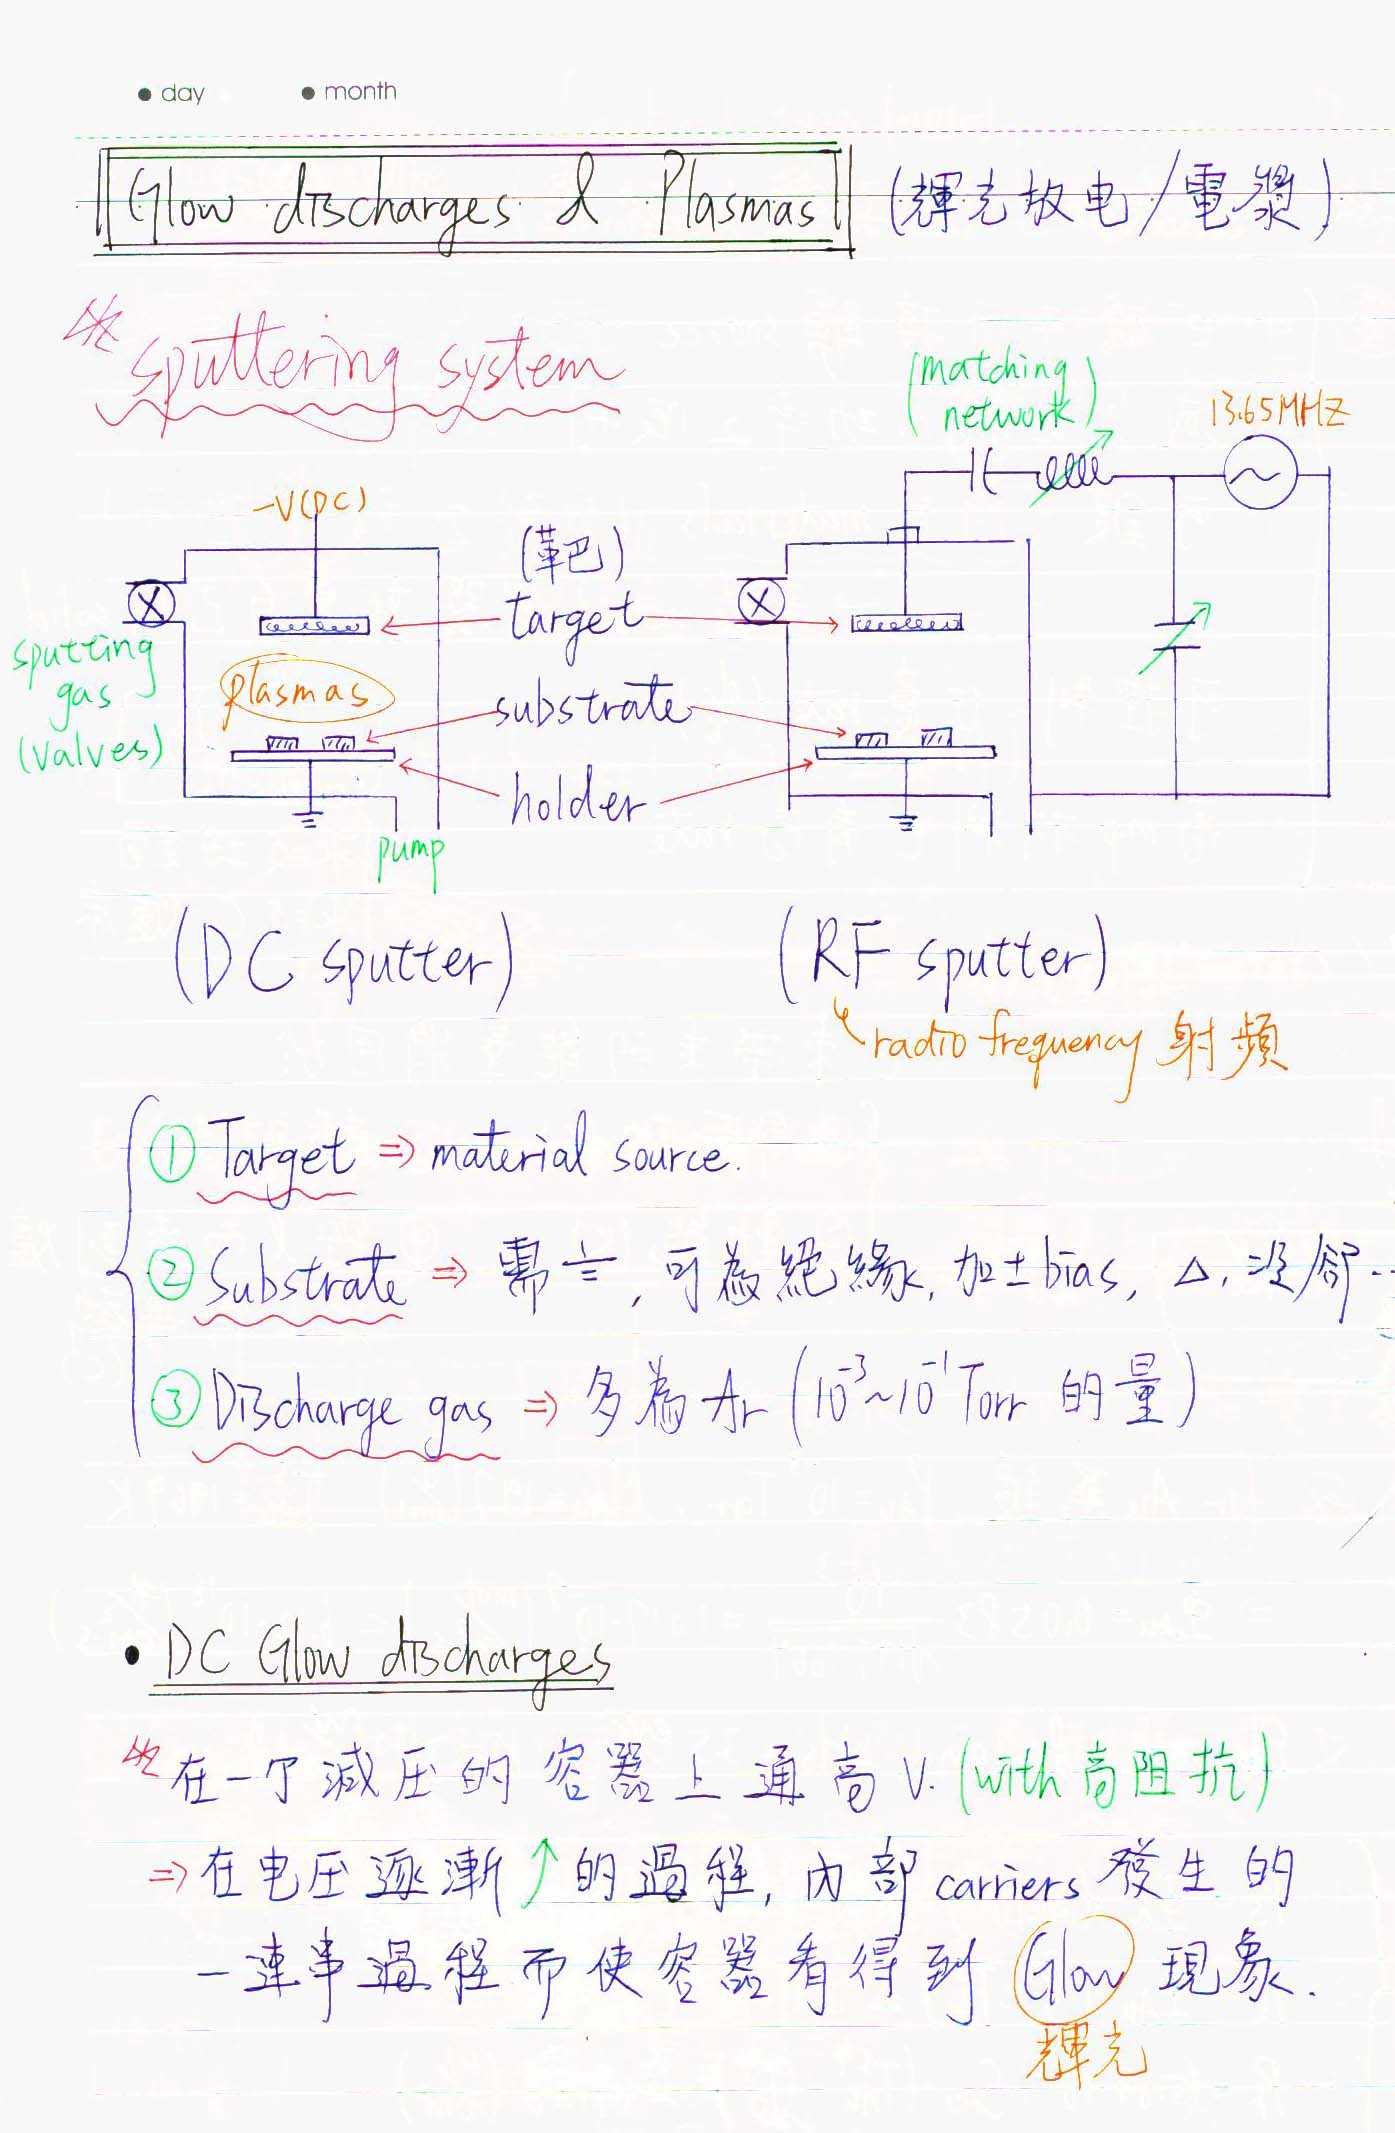 ● day ● month
Glow discharges & Plasmas (輝光放电/電漿)
※ sputtering system
(matching
network)
13.65MHz
-V(DC)
(革巴)
target
sputting
gas
(valves)
plasmas
substrate
holder
pump
(DC sputter) (RF sputter)
radio frequency 射頻
① Target ⇒ material source.
② Substrate ⇒ 需 , 可為絕緣, 加±bias, △, 冷卻...
③ Discharge gas ⇒ 多為 Ar (10⁻³~10⁻¹ Torr 的量)
• DC Glow discharges
※ 在一个減压的容器上通高V. (with 高阻抗)
⇒ 在电压逐漸↑的過程, 內部 carriers 發生的
一連串過程而使容器看得到 Glow 現象.
輝光